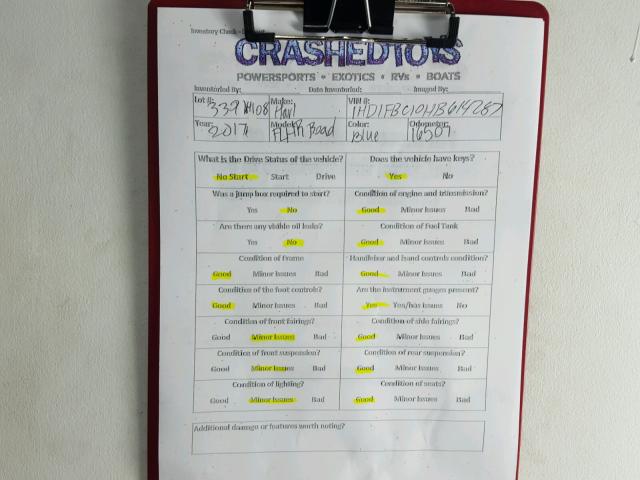 Inventory Check
CRASHEDTOYS
POWERSPORTS • EXOTICS • RVs • BOATS
Inventoried By: Date Inventoried: Imaged By:
Lot #: Make: Harl VIN #: 1HD1FBC10HB614287
Year: 2017 Model: FLHR Road Color: Blue Odometer: 16507
What is the Drive Status of the vehicle? Does the vehicle have keys?
No Start Start Drive Yes No
Was a jump box required to start? Condition of engine and transmission?
Yes No Good Minor Issues Bad
Are there any visible oil leaks? Condition of Fuel Tank
Yes No Good Minor Issues Bad
Condition of Frame Handlebar and hand controls condition?
Good Minor Issues Bad Good Minor Issues Bad
Condition of the foot controls? Are the instrument gauges present?
Good Minor Issues Bad Yes Yes/has Issues No
Condition of front fairings? Condition of side fairings?
Good Minor Issues Bad Good Minor Issues Bad
Condition of front suspension? Condition of rear suspension?
Good Minor Issues Bad Good Minor Issues Bad
Condition of lighting? Condition of seats?
Good Minor Issues Bad Good Minor Issues Bad
Additional damage or features worth noting?